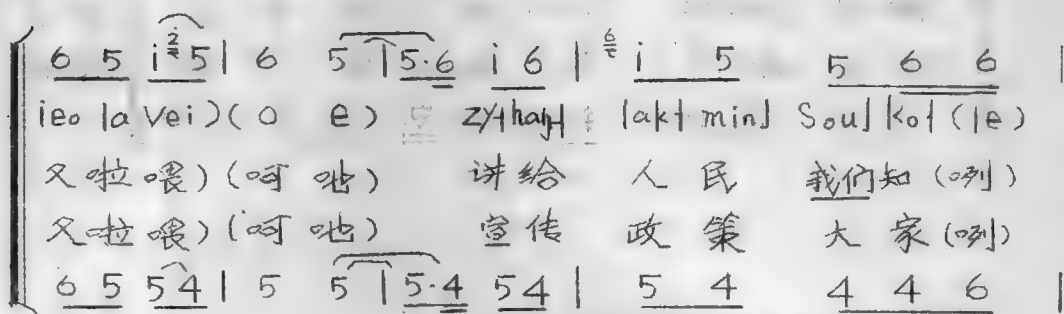 6 5 i 2 5 | 6 5 | 5·6 i 6 | 6 i 5 5 6 6 |
ieo la vei) (o e) zy˧ haŋ˧ lak˧ min˩ Sou˩ ko˧ (le)
又啦喂) (呵吔) 讲给 人民 我们知 (咧)
又啦喂) (呵吔) 宣传 政策 大家 (咧)
6 5 5 4 | 5 5 | 5·4 5 4 | 5 4 4 4 6 |